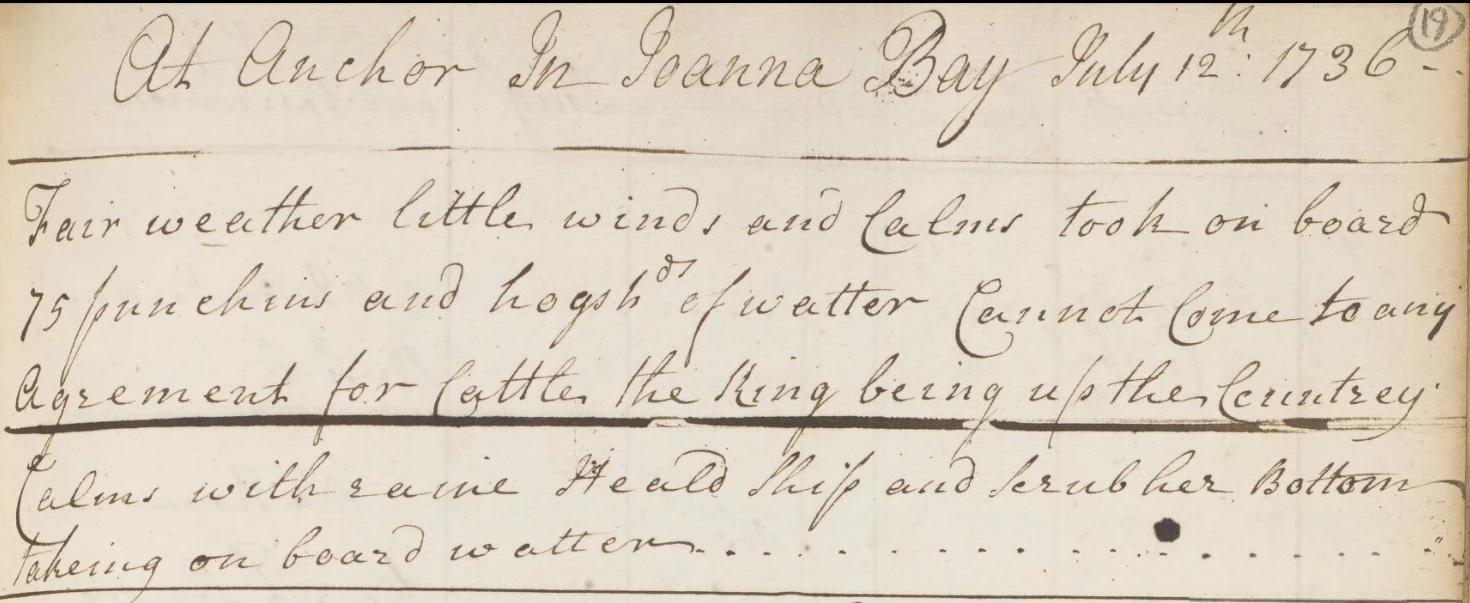 19
At Anchor In Joanna Bay July 12th: 1736 -
Fair weather little winds and Calms took on board
75 punchins and hogshds of watter Cannot Come to any
Agrement for Cattle the King being up the Countrey
Calms with raine Heald Ship and scrub her Bottom
takeing on board watter . . . . . . . . . . . . . . . . .